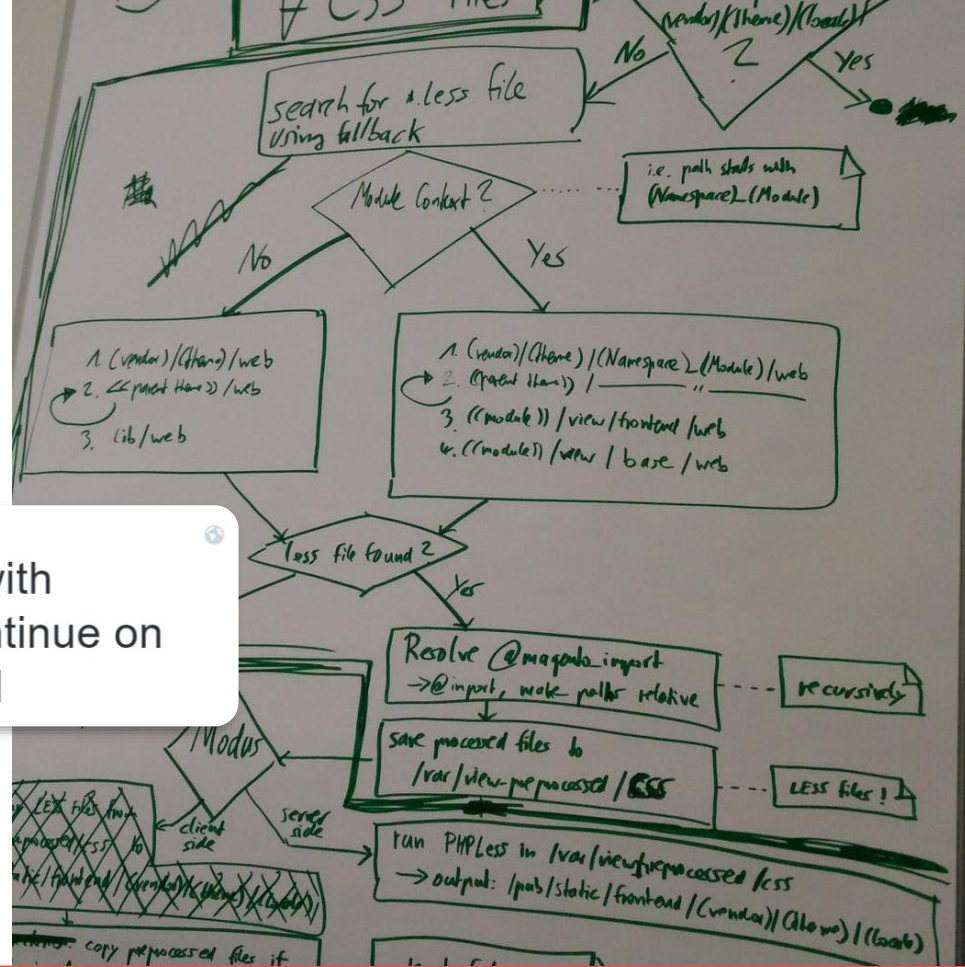 ∀ CSS Files
(vendor)/(theme)/(locale)/
?
No
Yes
search for *.less file
using fallback
Module Context?
i.e. path starts with
(Namespace)_(Module)
No
Yes
1. (vendor)/(theme)/web
2. <<parent theme>>/web
3. lib/web
1. (vendor)/(theme)/(Namespace)_(Module)/web
2. ((parent theme)) / — " —
3. ((module))/view/frontend/web
4. ((module))/view/base/web
less file found?
Yes
with
ntinue on
Resolve @magento_import
→@import, make paths relative
recursively
save processed files to
/var/view-preprocessed/css
LESS files!
Modus
client
side
server
side
LESS files from
to
run PHPLess in /var/view-preprocessed/css
→ output: /pub/static/frontend/(vendor)/(theme)/(locale)
copy preprocessed files if